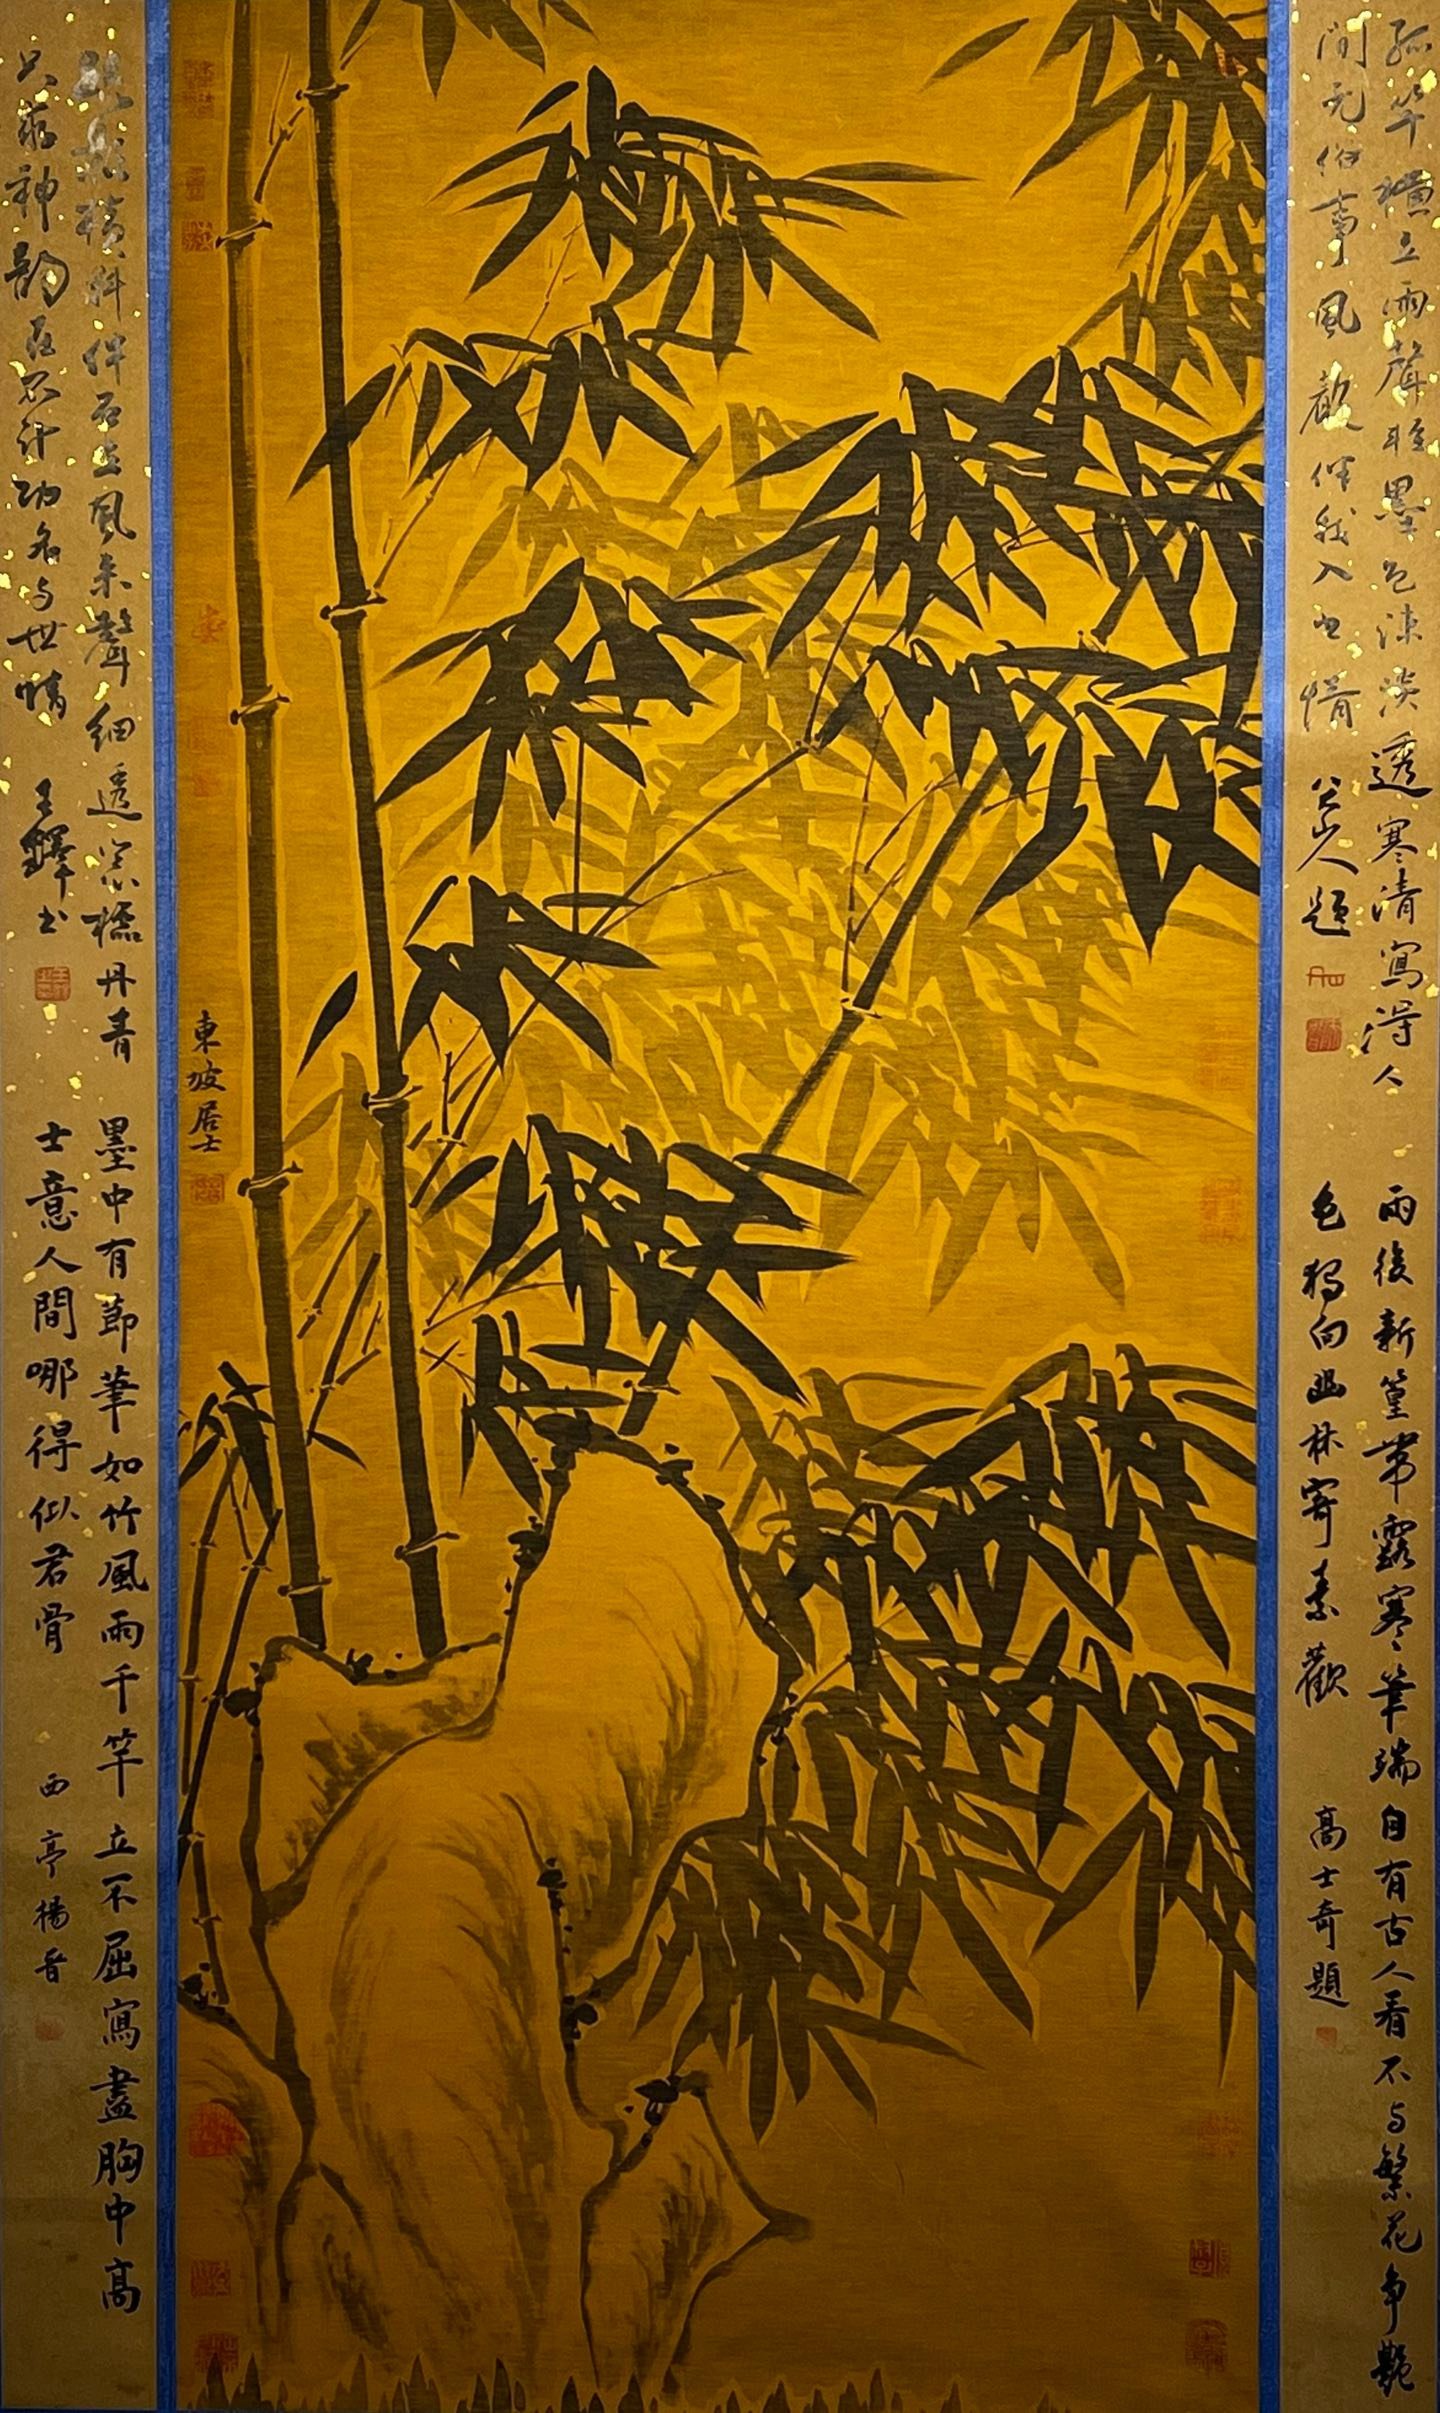 孤竿獨立雨聲輕墨色淡淡透寒清寫得人
間無俗事風聲伴我入書情
八大山人題
雨後新篁帶露寒筆端自有古人看不与繁花争艷
色獨向幽林寄素歡
高士奇題
東坡居士
橫斜伴石生風来聲細透窓櫺丹青
只蔵神韵在不计功名与世情
王鐸書
墨中有節筆如竹風雨千竿立不屈寫盡胸中高
士意人間哪得似君骨
西亭楊晋